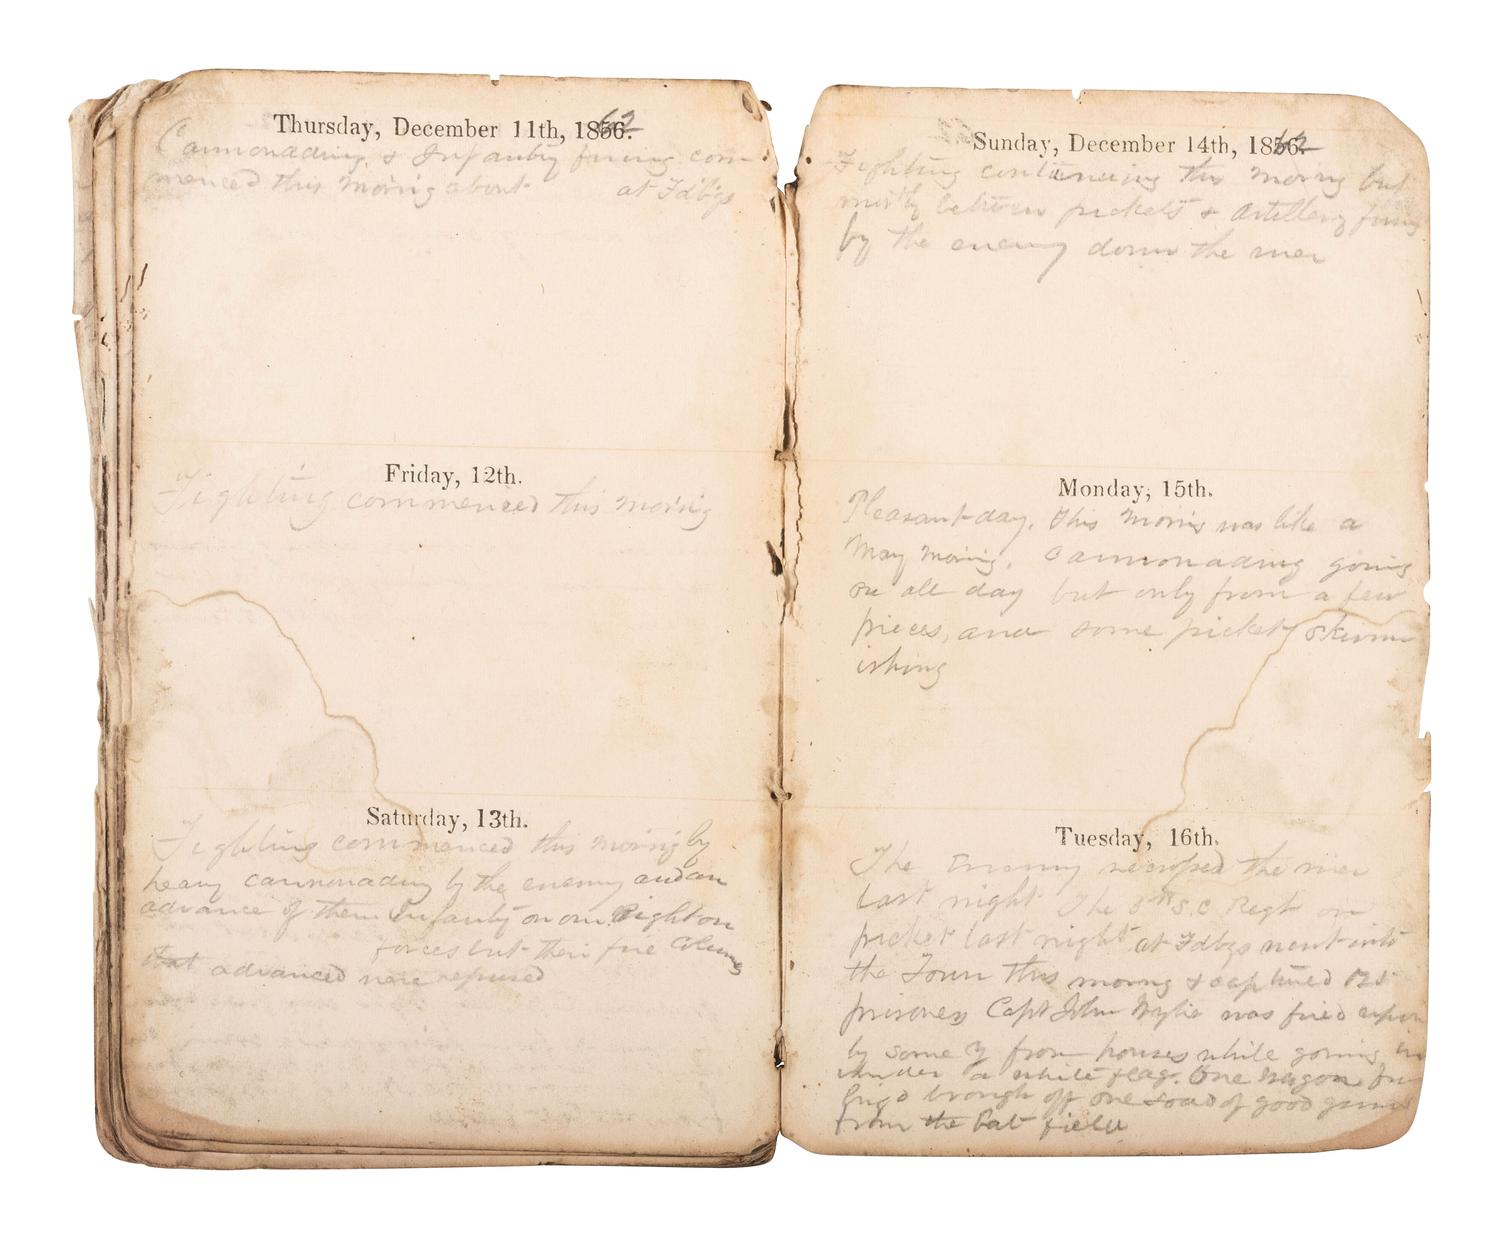 Thursday, December 11th, 1862
Cannonading & Infantry firing com-
menced this morning about at Fdbgs
Friday, 12th.
Fighting commenced this mornig
Saturday, 13th.
Fighting commenced this mornig by
heavy cannonading by the enemy and an
advance of their Infantry on our Right on
forces but their five Columns
that advanced were repused
Sunday, December 14th, 1862
Fighting continuing this morng but
mostly between pickets & Artillery firing
by the enemy down the river
Monday, 15th.
Pleasant day. This mornig was like a
May mornig. Cannonading going
on all day but only from a few
pieces, and some picket skirm
ishing
Tuesday, 16th.
The Enemy recrossed the river
last night The S.C Regt on
picket last night at Fdbgs went into
the Town this morng & captured
prisoners Capt John Wylie was fired upon
by some Y from houses while going in
under a white flag. One wagon
Brigd brough off one load of good guns
from the Bat field